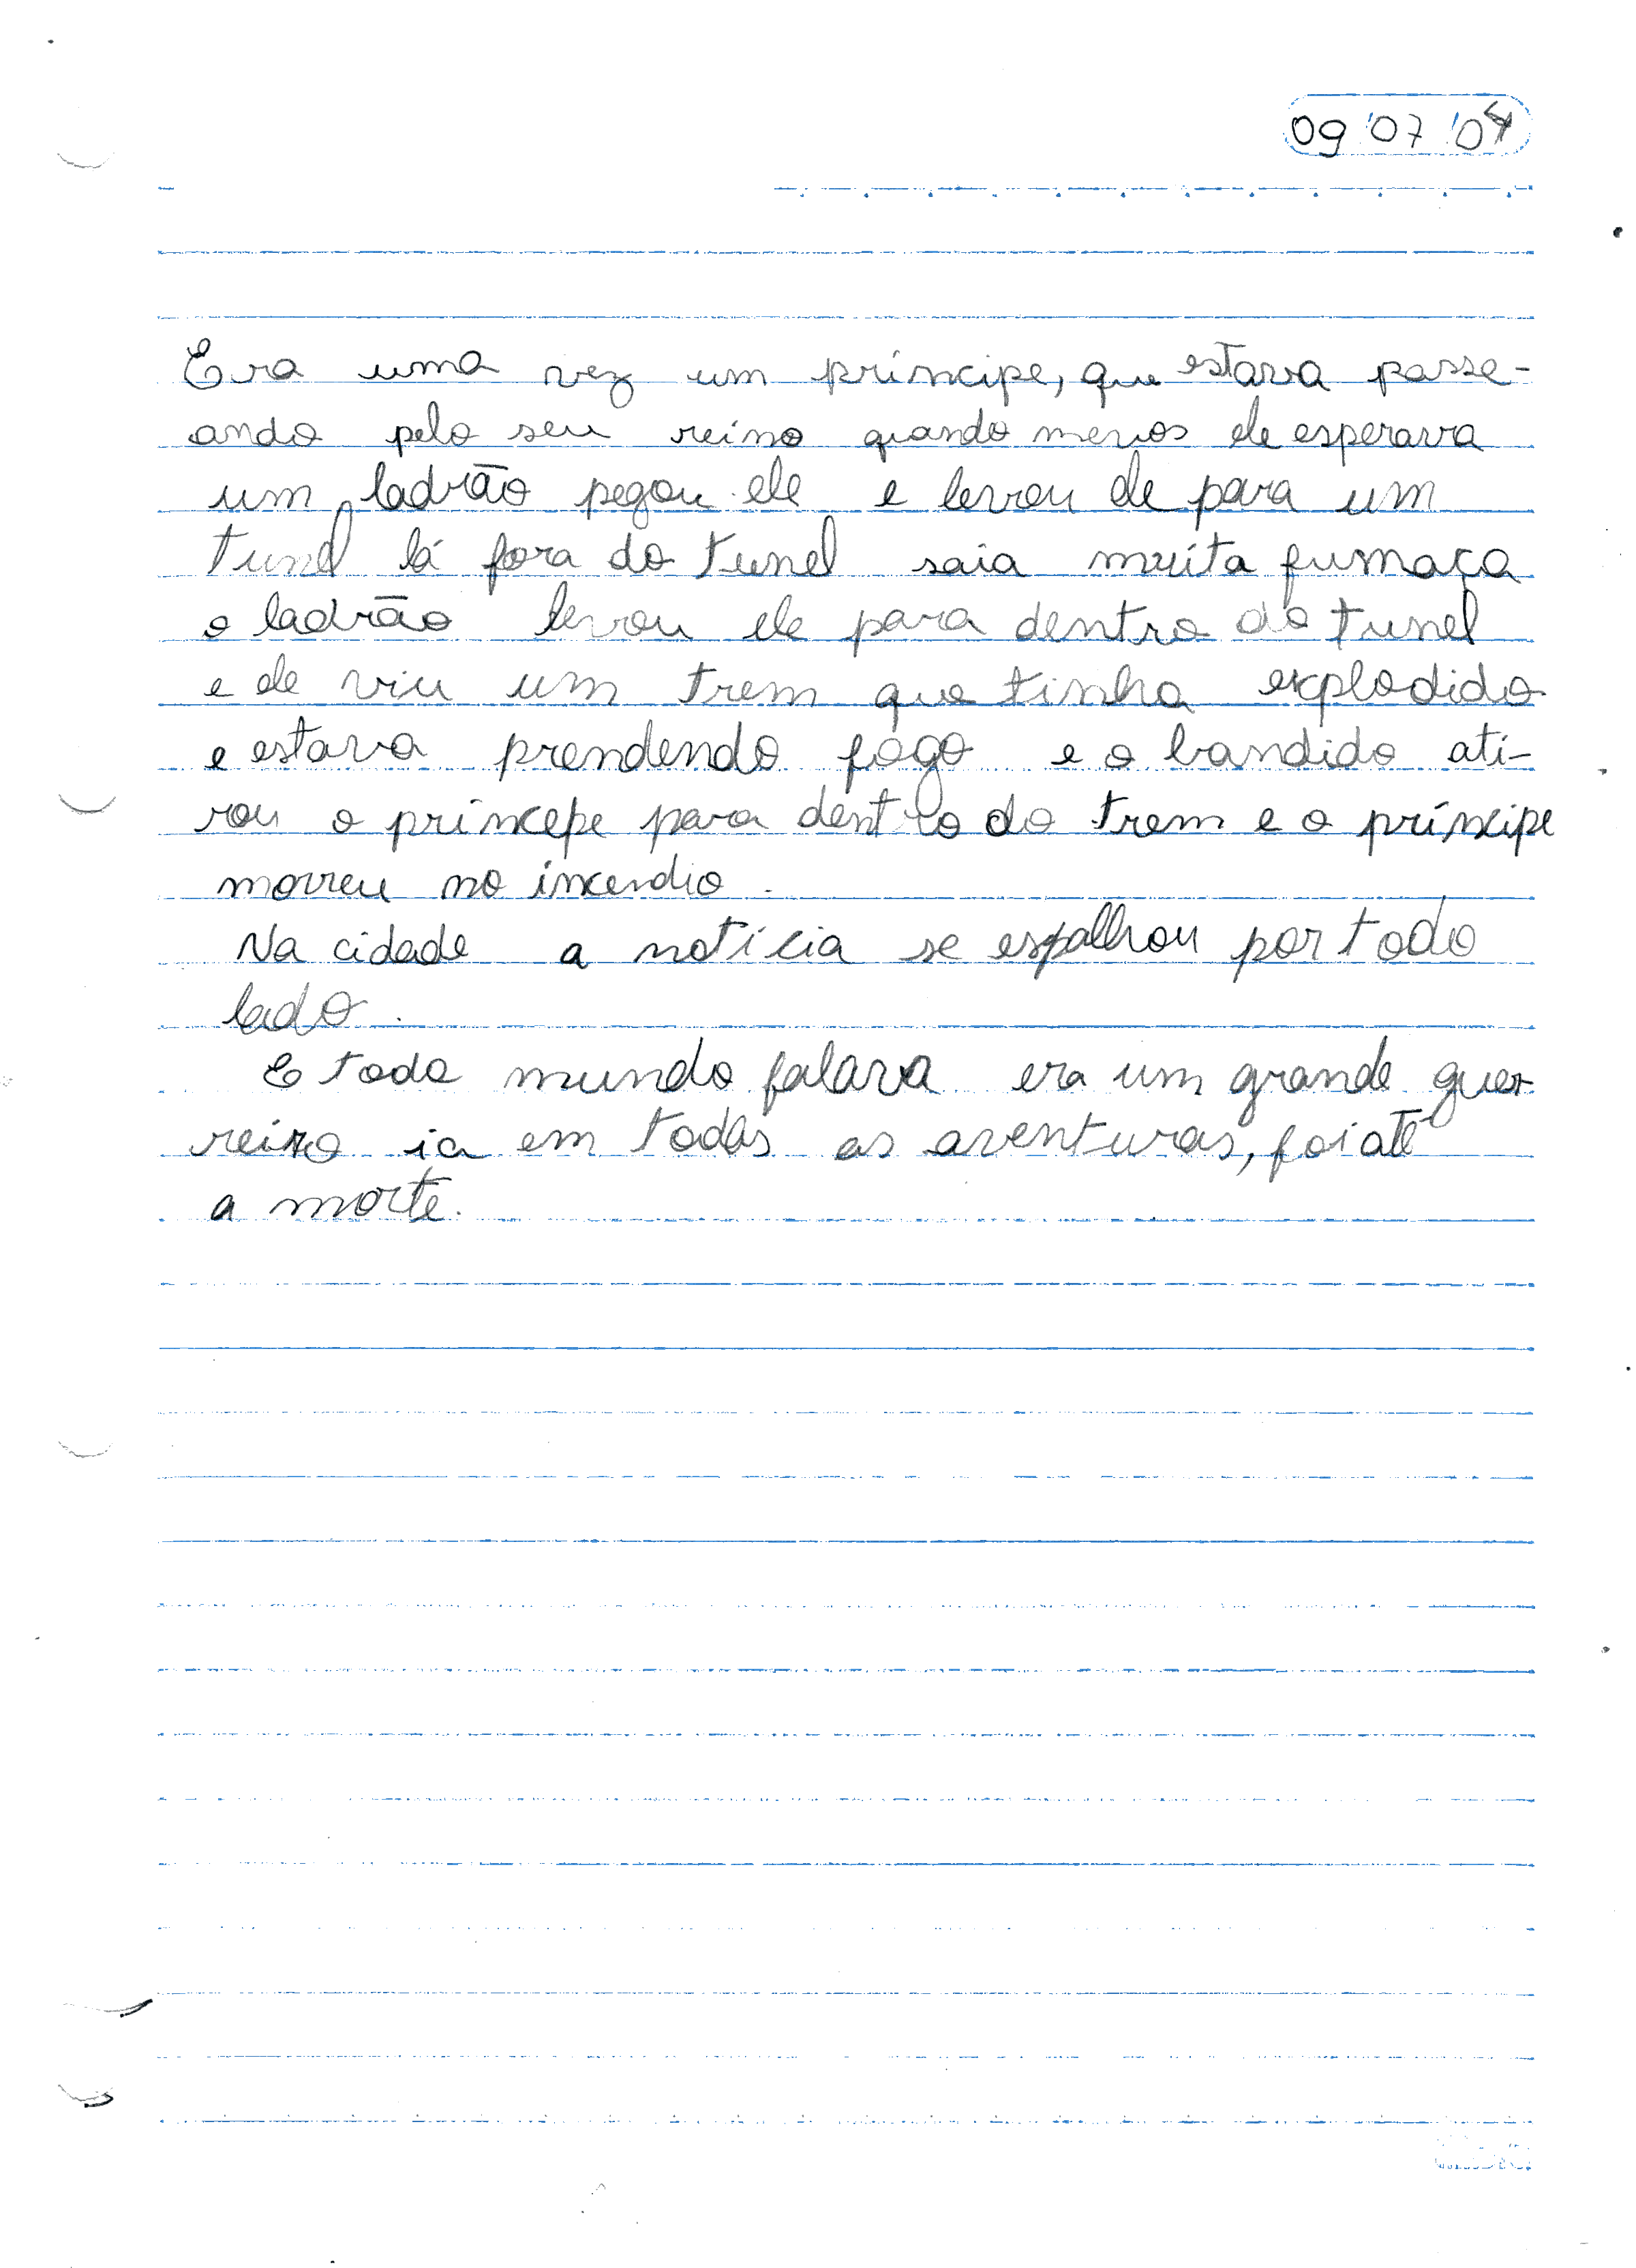 09 07 04
Era uma vez um príncipe, que estava passe-
ando pelo seu reino quando menos ele esperava
um ladrão pegou ele e levou ele para um
tunel lá fora do tunel saia muita fumaça
o ladrão levou ele para dentro do tunel
e ele viu um trem que tinha explodido
e estava prendendo fogo e o bandido ati-
rou o príncepe para dentro do trem e o príncipe
morreu no incendio.
Na cidade a notícia se espalhou por todo
lado.
E todo mundo falava era um grande guer
reiro ia em todas as aventuras, foi até
a morte.